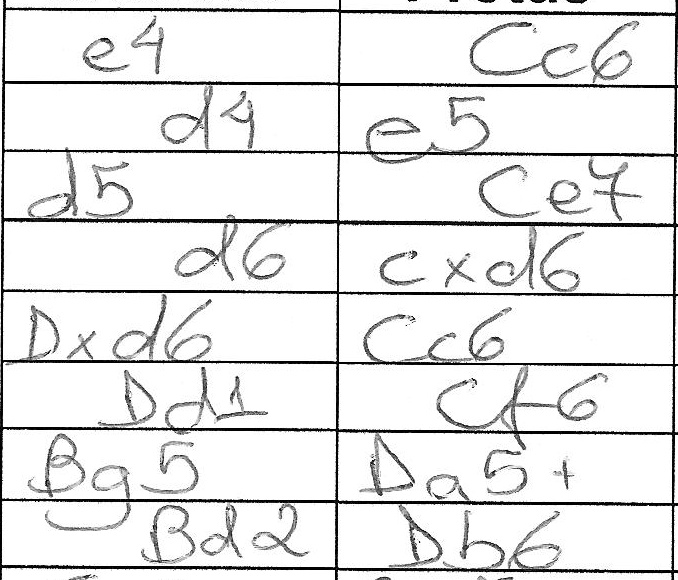 e4 Cc6
d4 e5
d5 Ce7
d6 cxd6
Dxd6 Cc6
Dd1 Cf6
Bg5 Da5+
Bd2 Db6